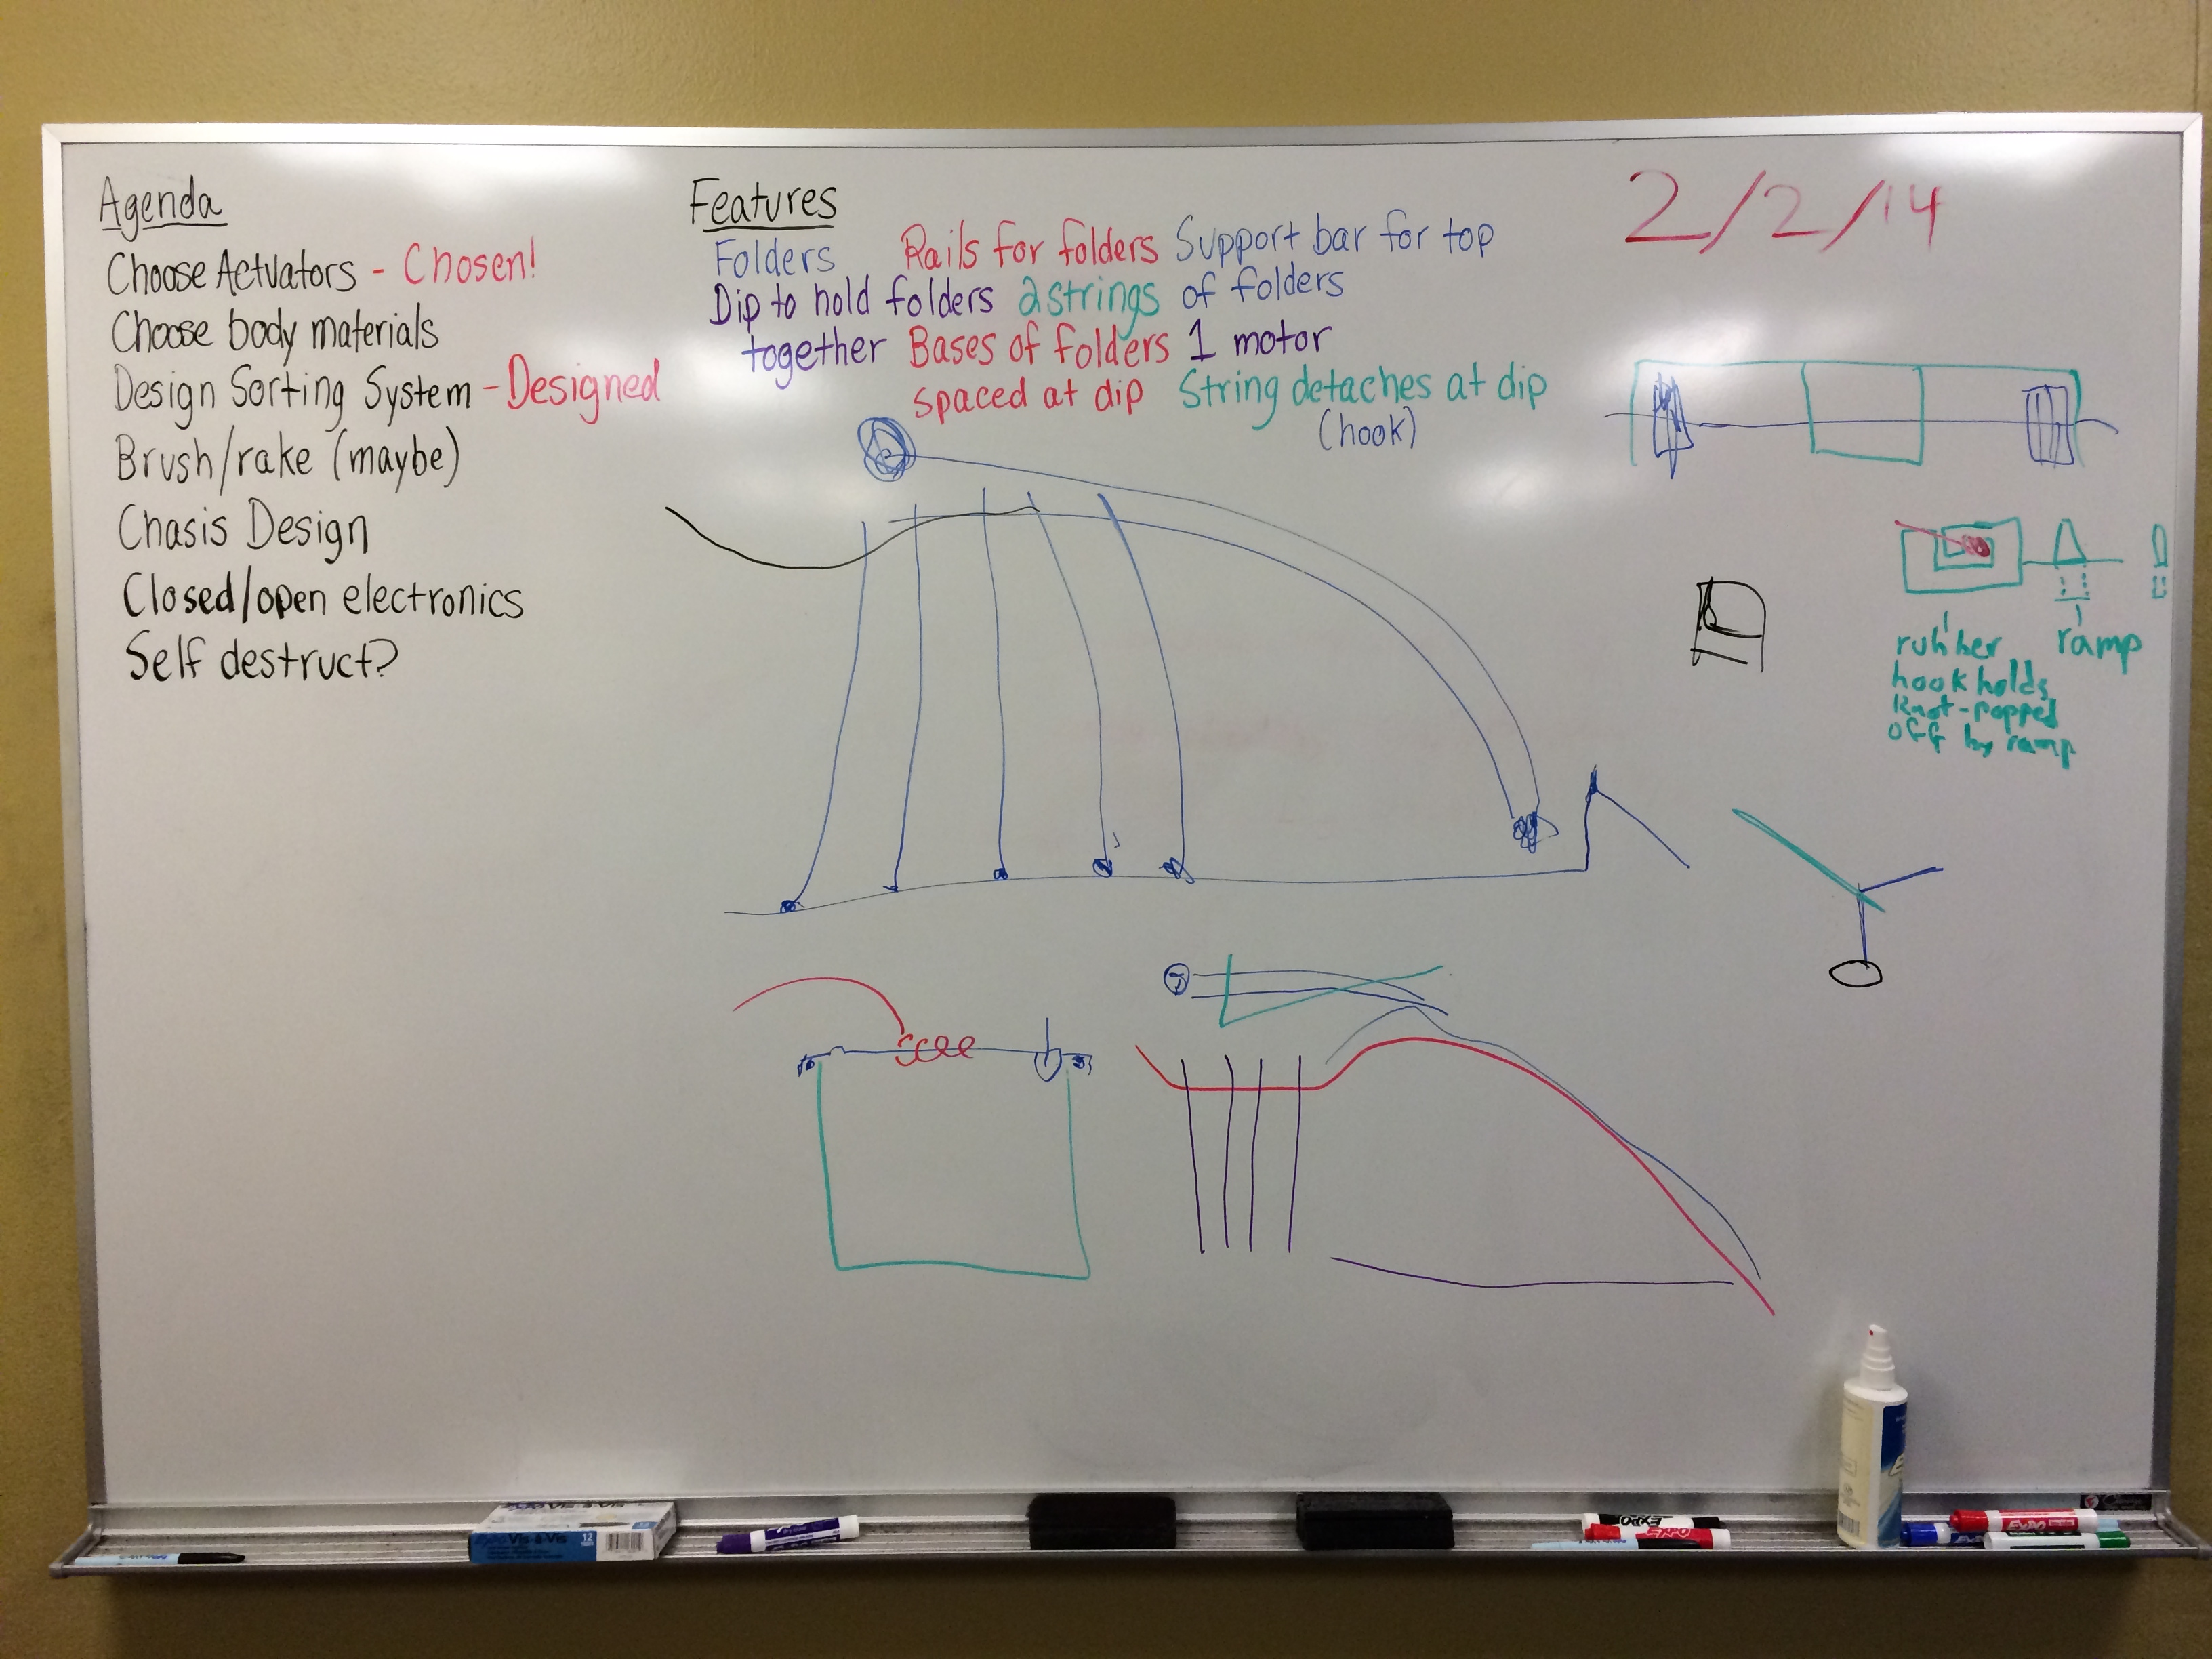 Agenda
Choose Actuators - Chosen!
Choose body materials
Design Sorting System - Designed
Brush/rake (maybe)
Chasis Design
Closed/open electronics
Self destruct?
Features
Folders
Dip to hold folders
together
Rails for folders
2 strings
Bases of folders
spaced at dip
Support bar for top
of folders
1 motor
String detaches at dip
(hook)
2/2/14
rubber
hook holds
knot-popped
off by ramp
ramp
Vis-à-Vis
12
EXPO
EXPO
EXPO